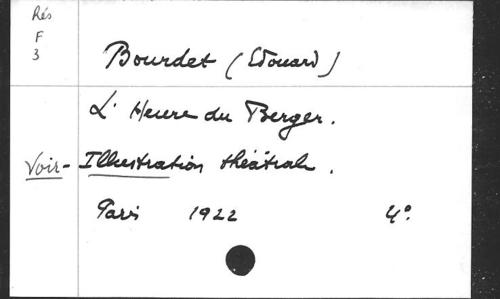 Rés
F
3
Bourdet (Edouard)
L'Heure du Berger.
Voir - Illustration théâtrale.
Paris 1922 4°.